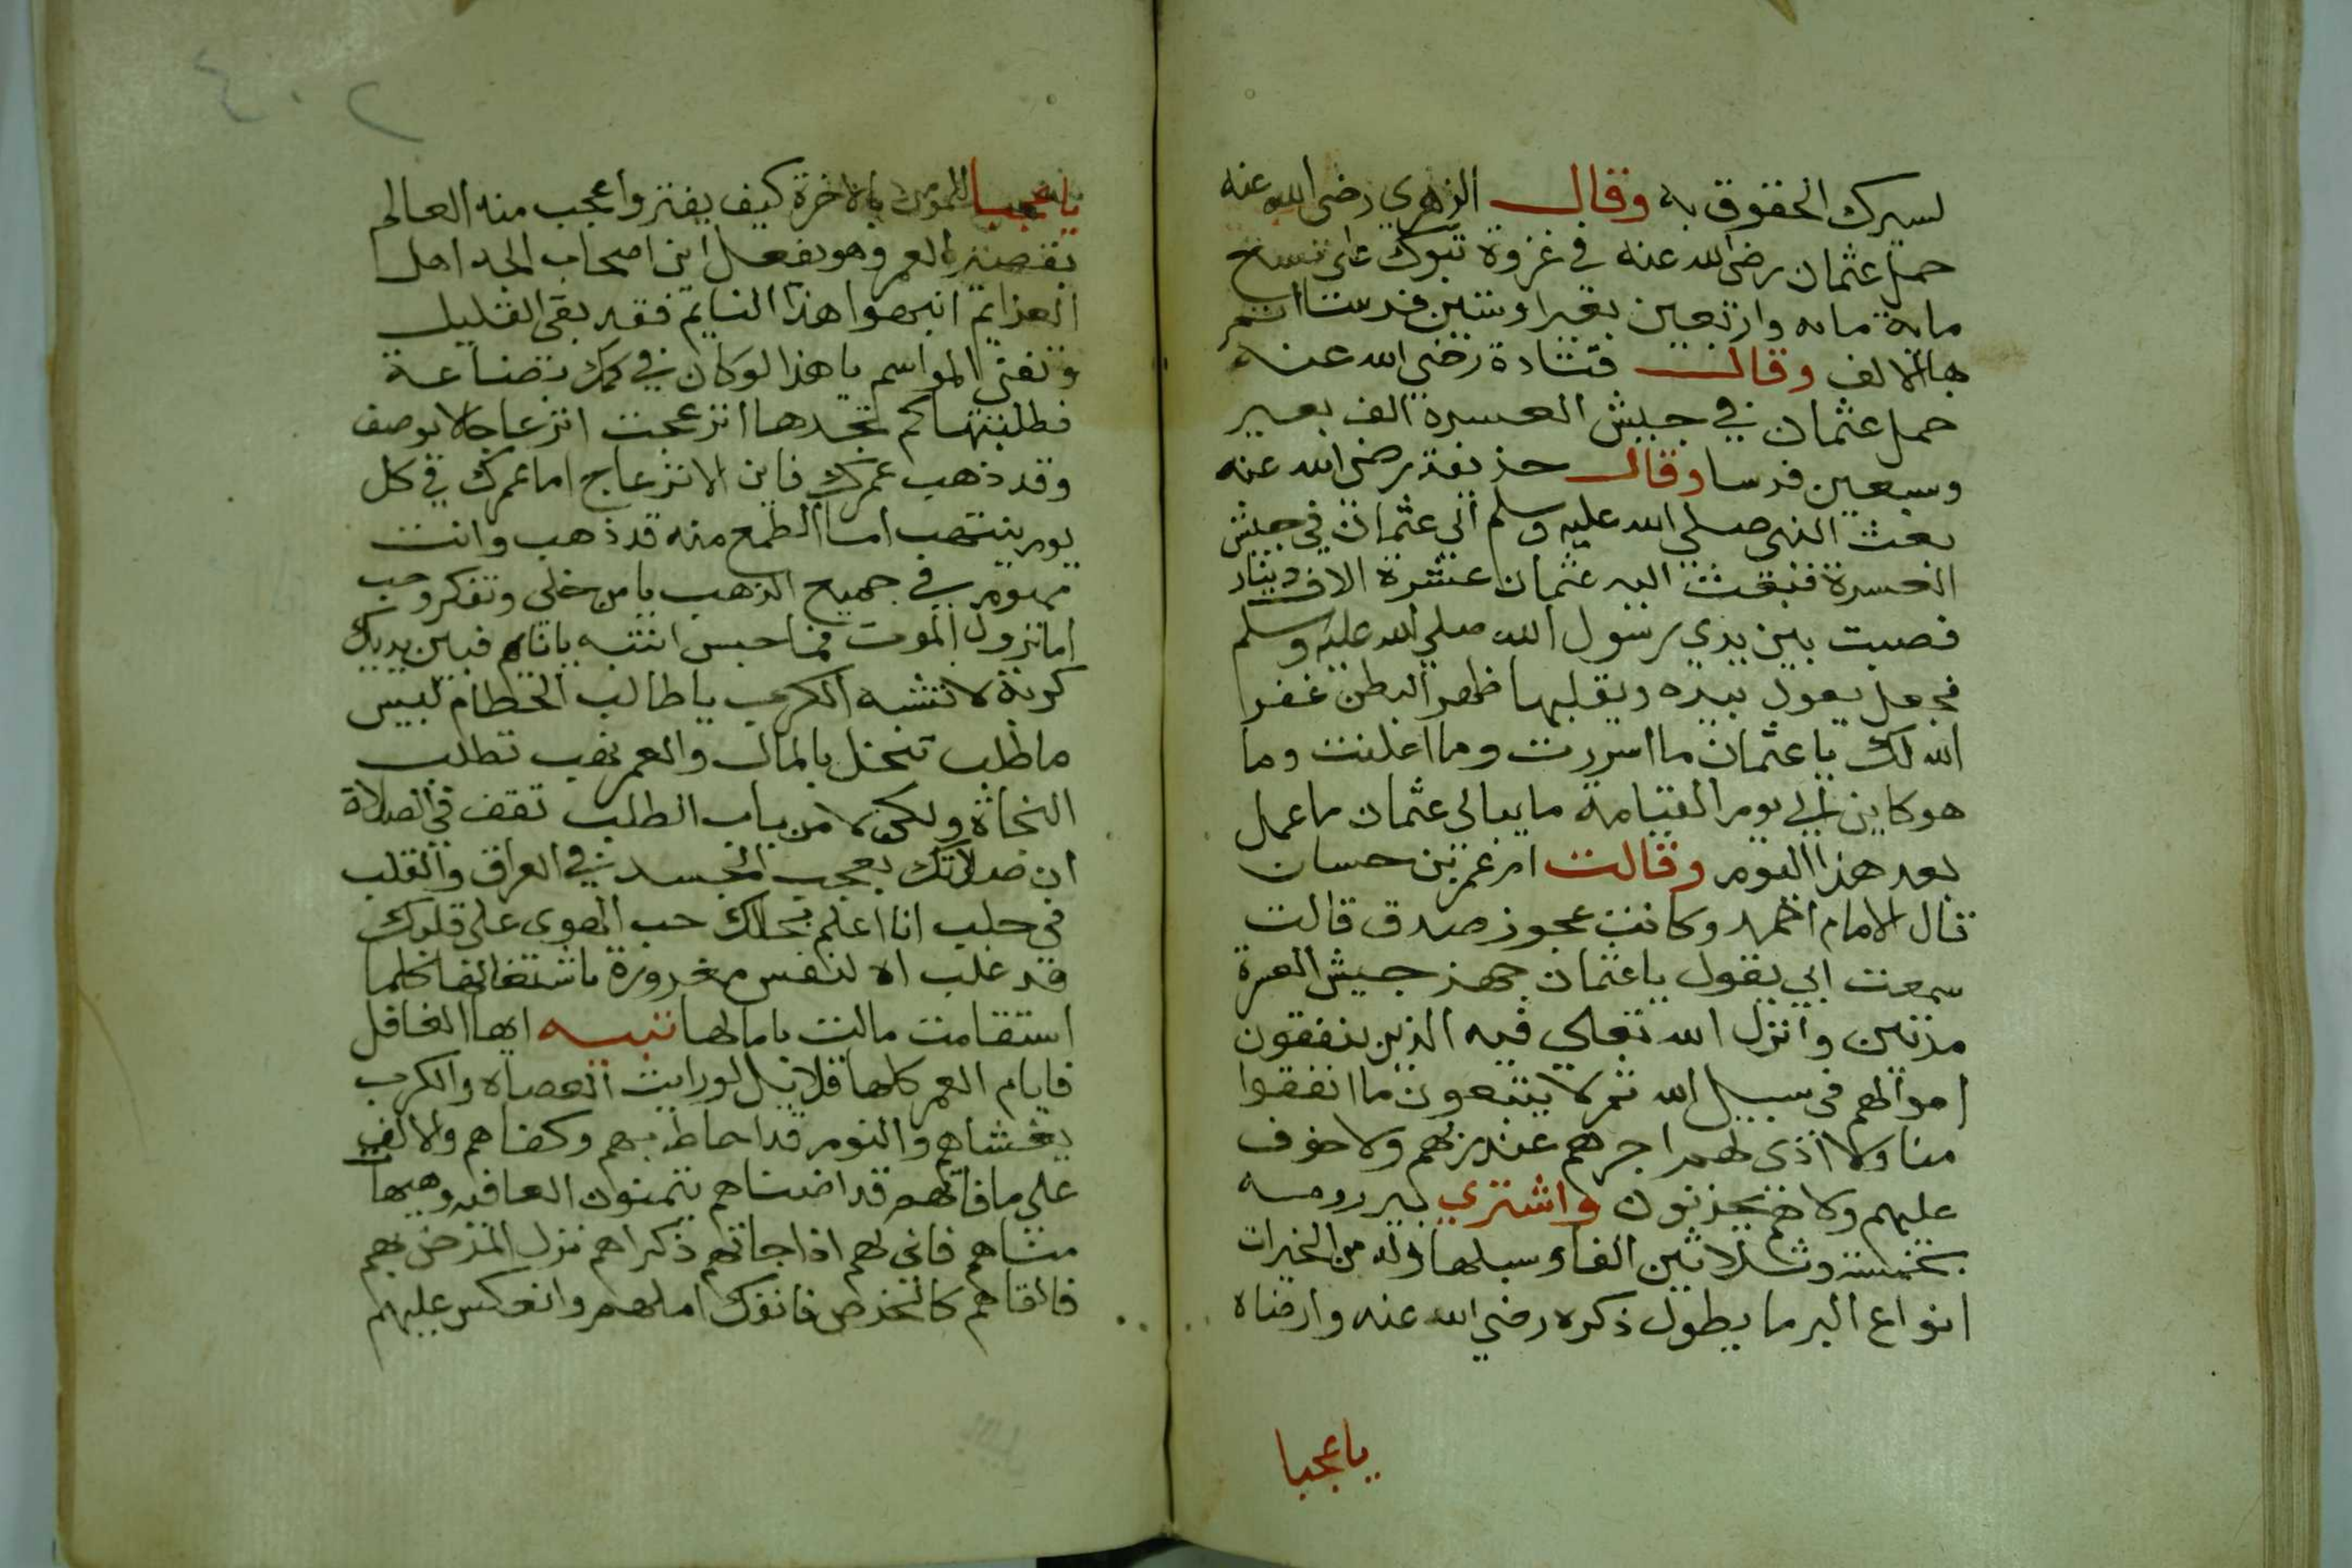 لسرك الحقوق به وقال الزهري رضي الله عنه
حمل عثمان رضي الله عنه في غزوة تبوك على تسع
ماية مايه واربعين بعيرا وستين فرسا اتم
بها الالف وقال قتادة رضي الله عنه
حمل عثمان في جيش العسرة الف بعير
وسبعين فرسا وقال حذيفة رضي الله عنه
بعث النبي صلي الله عليه وسلم الى عثمان في جيش
العسرة فبعث اليه عثمان عشرة الاف دينار
فصبت بين يدي رسول الله صلي الله عليه وسلم
فجعل يقول بيده ويقلبها ظهر البطن غفر
الله لك يا عثمان ما اسررت وما اعلنت وما
هو كاين الي يوم القيامة ما يبالى عثمان ما عمل
بعد هذا اليوم وقالت ام عمر بن حسان
قال الامام احمد وكانت عجوز صدق قالت
سمعت ابي يقول يا عثمان جهز جيش العسرة
مرتين وانزل الله تعالي فيه الذين ينفقون
اموالهم في سبيل الله ثم لا يتبعون ما انفقوا
منا ولا اذي لهم اجرهم عند ربهم ولا خوف
عليهم ولا هم يحزنون واشتري بير رومه
بخمسة وثلاثين الفا وسبلها وله من الخيرات
انواع البر ما يطول ذكره رضي الله عنه وارضاه
يا عجبا
٢٠٤
يا عجبا للمومن بالاخرة كيف يفتر واعجب منه العالم
بقصر العمر وهو يفعل اين اصحاب الجد اهل
العزايم انبهوا هذا النايم فقد بقى القليل
وتفنى المواسم يا هذا لو كان في كمك بضاعة
فطلبتها كم تجدها انزعجت انزعاجا لا يوصف
وقد ذهب عمرك فاين الانزعاج اما عمرك في كل
يوم ينتهب اما الطمع منه قد ذهب وانت
في جميع الذهب يا من خلى وتفكر وحب
اما نزول الموت فما حبس انتبه يا نايم فبين يديك
كربة لا تشبه الكرب يا طالب الحطام لبيس
ما طلب تبخل بالمال والعمر نهب تطلب
النجاة ولكن لا من باب الطلب تقف في الصلاة
ان صلاتك بعجب الجسد في العراق والقلب
في حلب انا اعلم بحالك حب الهوى على قلبك
قد غلب اه لنفس مغرورة باشتغالها كلما
استقامت مالت يا مالها تنبيه ايها الغافل
فايام العمر كلها قلايل لو رايت العصاه والكرب
يغشاهم والنوم قد احاط بهم وكفاهم والالف
على ما فاتهم قد اضناهم يتمنون العافيه وهيهات
مناهم فانى لهم اذا جاتهم ذكراهم نزل المرض بهم
فالقاهم كالحرض فانفرك املهم وانعكس عليهم